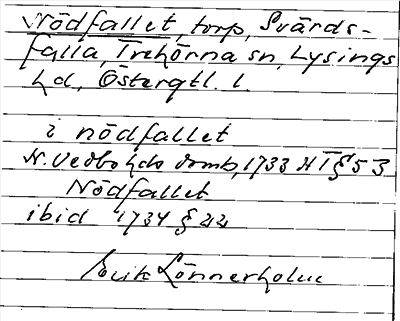 Nödfallet, torp, Svärds-
falla, Trehörna sn, Lysings
hd, Östergtl. l.
i nödfallet
N. Vedbo hds domb, 1733 HT § 53
Nödfallet
ibid 1734 § 22
Erik Lönnerholm